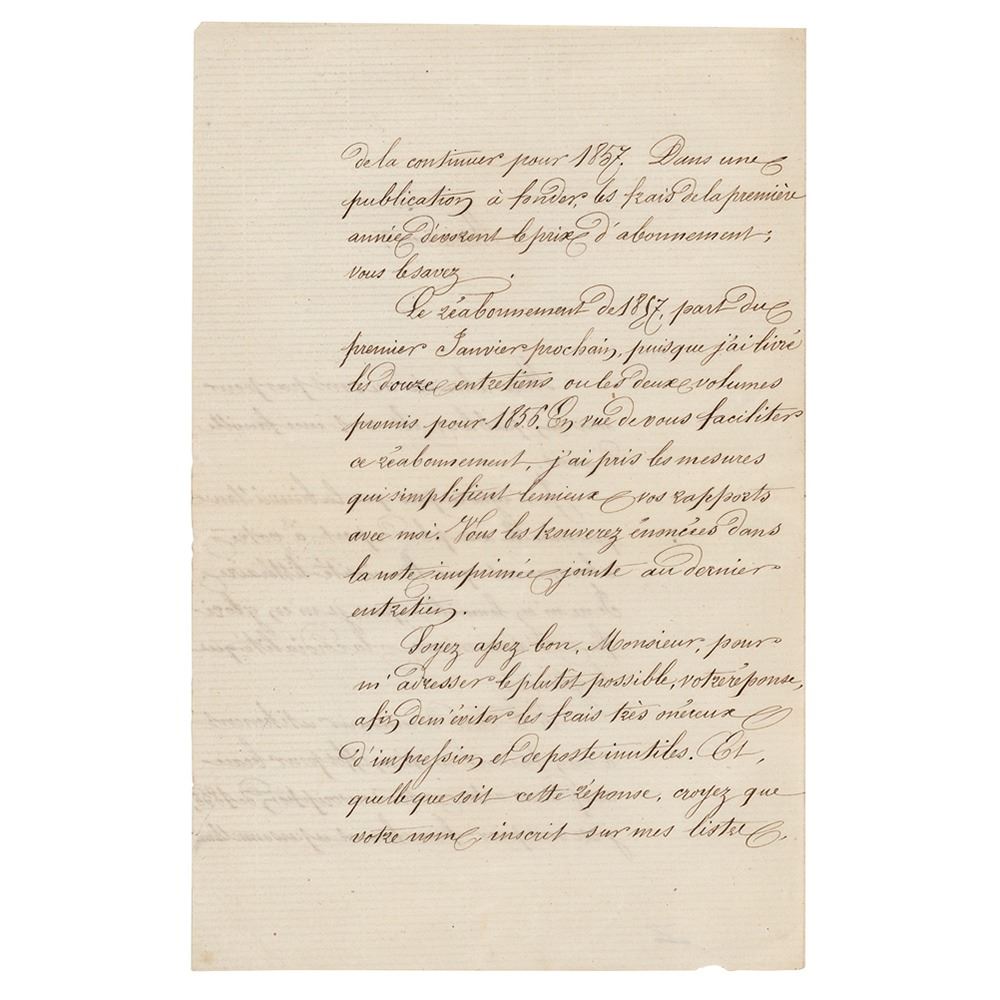 de la continuer pour 1857. Dans une
publication à fonder, les frais de la première
année dévorent le prix d'abonnement ;
vous le savez.
Le réabonnement de 1857, part du
premier Janvier prochain, puisque j'ai livré
les douze entretiens ou les deux volumes
promis pour 1856. En vue de vous faciliter
ce réabonnement, j'ai pris les mesures
qui simplifient le mieux vos rapports
avec moi. Vous les trouverez énoncées dans
la note imprimée jointe au dernier
entretien.
Soyez assez bon, Monsieur, pour
m'adresser le plutot possible, votre réponse,
afin de m'éviter les frais très onéreux
d'impression et de poste inutiles. Et,
quelle que soit cette réponse, croyez que
votre nom, inscrit sur mes listes,